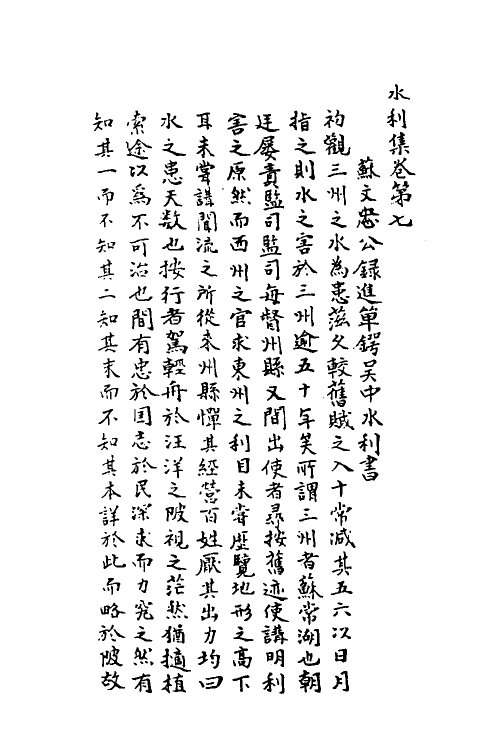 水利集卷第七
蘇文忠公録進單鍔吴中水利書
初觀三州之水為患滋久較舊賊之入十常减其五六以日月
指之則水之害於三州逾五十年矣所謂三州者蘇常湖也朝
廷屡責監司監司每督州縣又間出使者尋按舊迹使講明利
害之原然而西州之官求東州之利目未嘗歷覽地形之高下
耳未嘗講聞流之所從来州縣憚其經營百姓厭其出力均曰
水之患天数也按行者駕輕舟於汪洋之陂視之茫然猶擿植
索途以爲不可治也間有忠於国志於民深求而力究之然有
知其一而不知其二知其末而不知其本詳於此而略於陂故